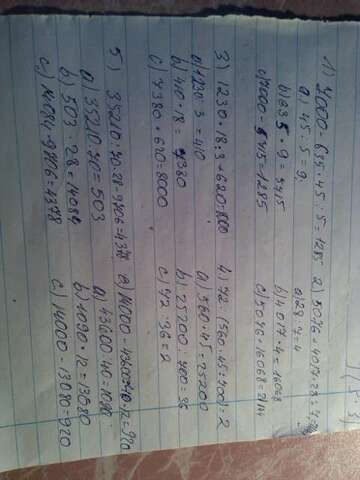 1) 7000 - 635 · 45 : 5 = 1285
a) 45 : 5 = 9
b) 635 · 9 = 5715
c) 7000 - 5715 = 1285
2) 5046 + 4017 · 28 : 7 =
a) 28 : 7 = 4
b) 4017 · 4 = 16068
c) 5046 + 16068 = 21114
3) 1230 · 18 : 3 + 620 = 8000
a) 1230 : 3 = 410
b) 410 · 18 = 7380
c) 7380 + 620 = 8000
4) 72 : (560 · 45 : 700) = 2
a) 560 · 45 = 25200
b) 25200 : 700 = 36
c) 72 : 36 = 2
5) 35210 : 70 · 28 - 9706 = 4378
a) 35210 : 70 = 503
b) 503 · 28 = 14084
c) 14084 - 9706 = 4378
14000 - 43600 : 40 · 12 = 920
a) 43600 : 40 = 1090
b) 1090 · 12 = 13080
c) 14000 - 13080 = 920